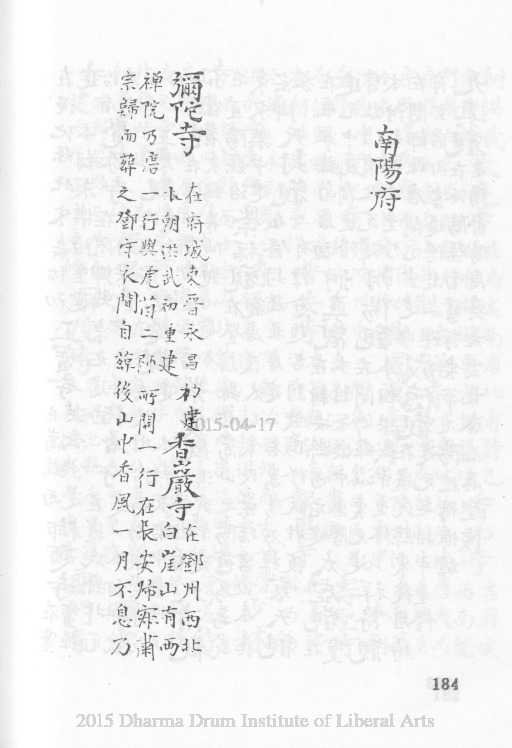 南陽府
彌陀寺
在府城東晉永昌初建
本朝洪武初重建
香巖寺
在鄧州西北
白崖山有西
禪院乃唐一行與虎茵二師所開一行在長安歸寂肅
宗歸而葬之鄧守衣間自葬後山中香風一月不息乃
2015-04-17
184
2015 Dharma Drum Institute of Liberal Arts